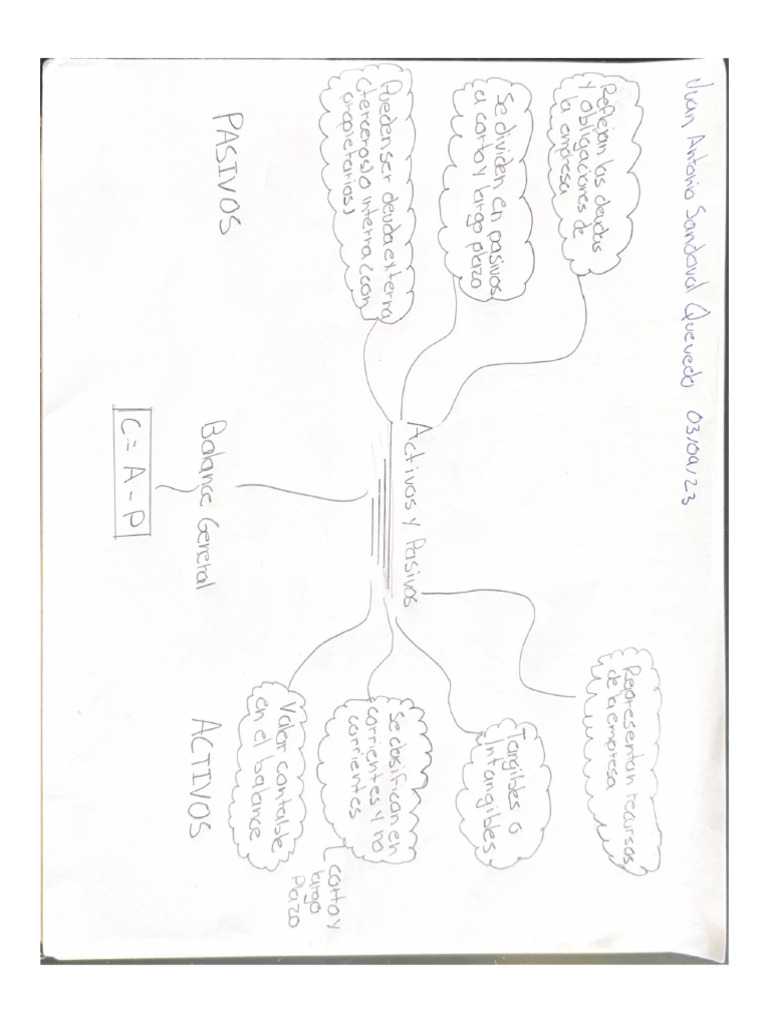 Juan Antonio Sandoval Quevedo 03/09/23
Reflejan las deudas
y obligaciones de
la empresa
Se dividen en pasivos
a corto y largo plazo
Pueden ser deuda externa
(terceros) o interna (con
propietarios)
PASIVOS
Activos y Pasivos
Balance General
C = A - P
Representan recursos
de la empresa
Tangibles o
intangibles
Se clasifican en
corrientes y no
corrientes
corto y
largo
plazo
Valor contable
en el balance
ACTIVOS